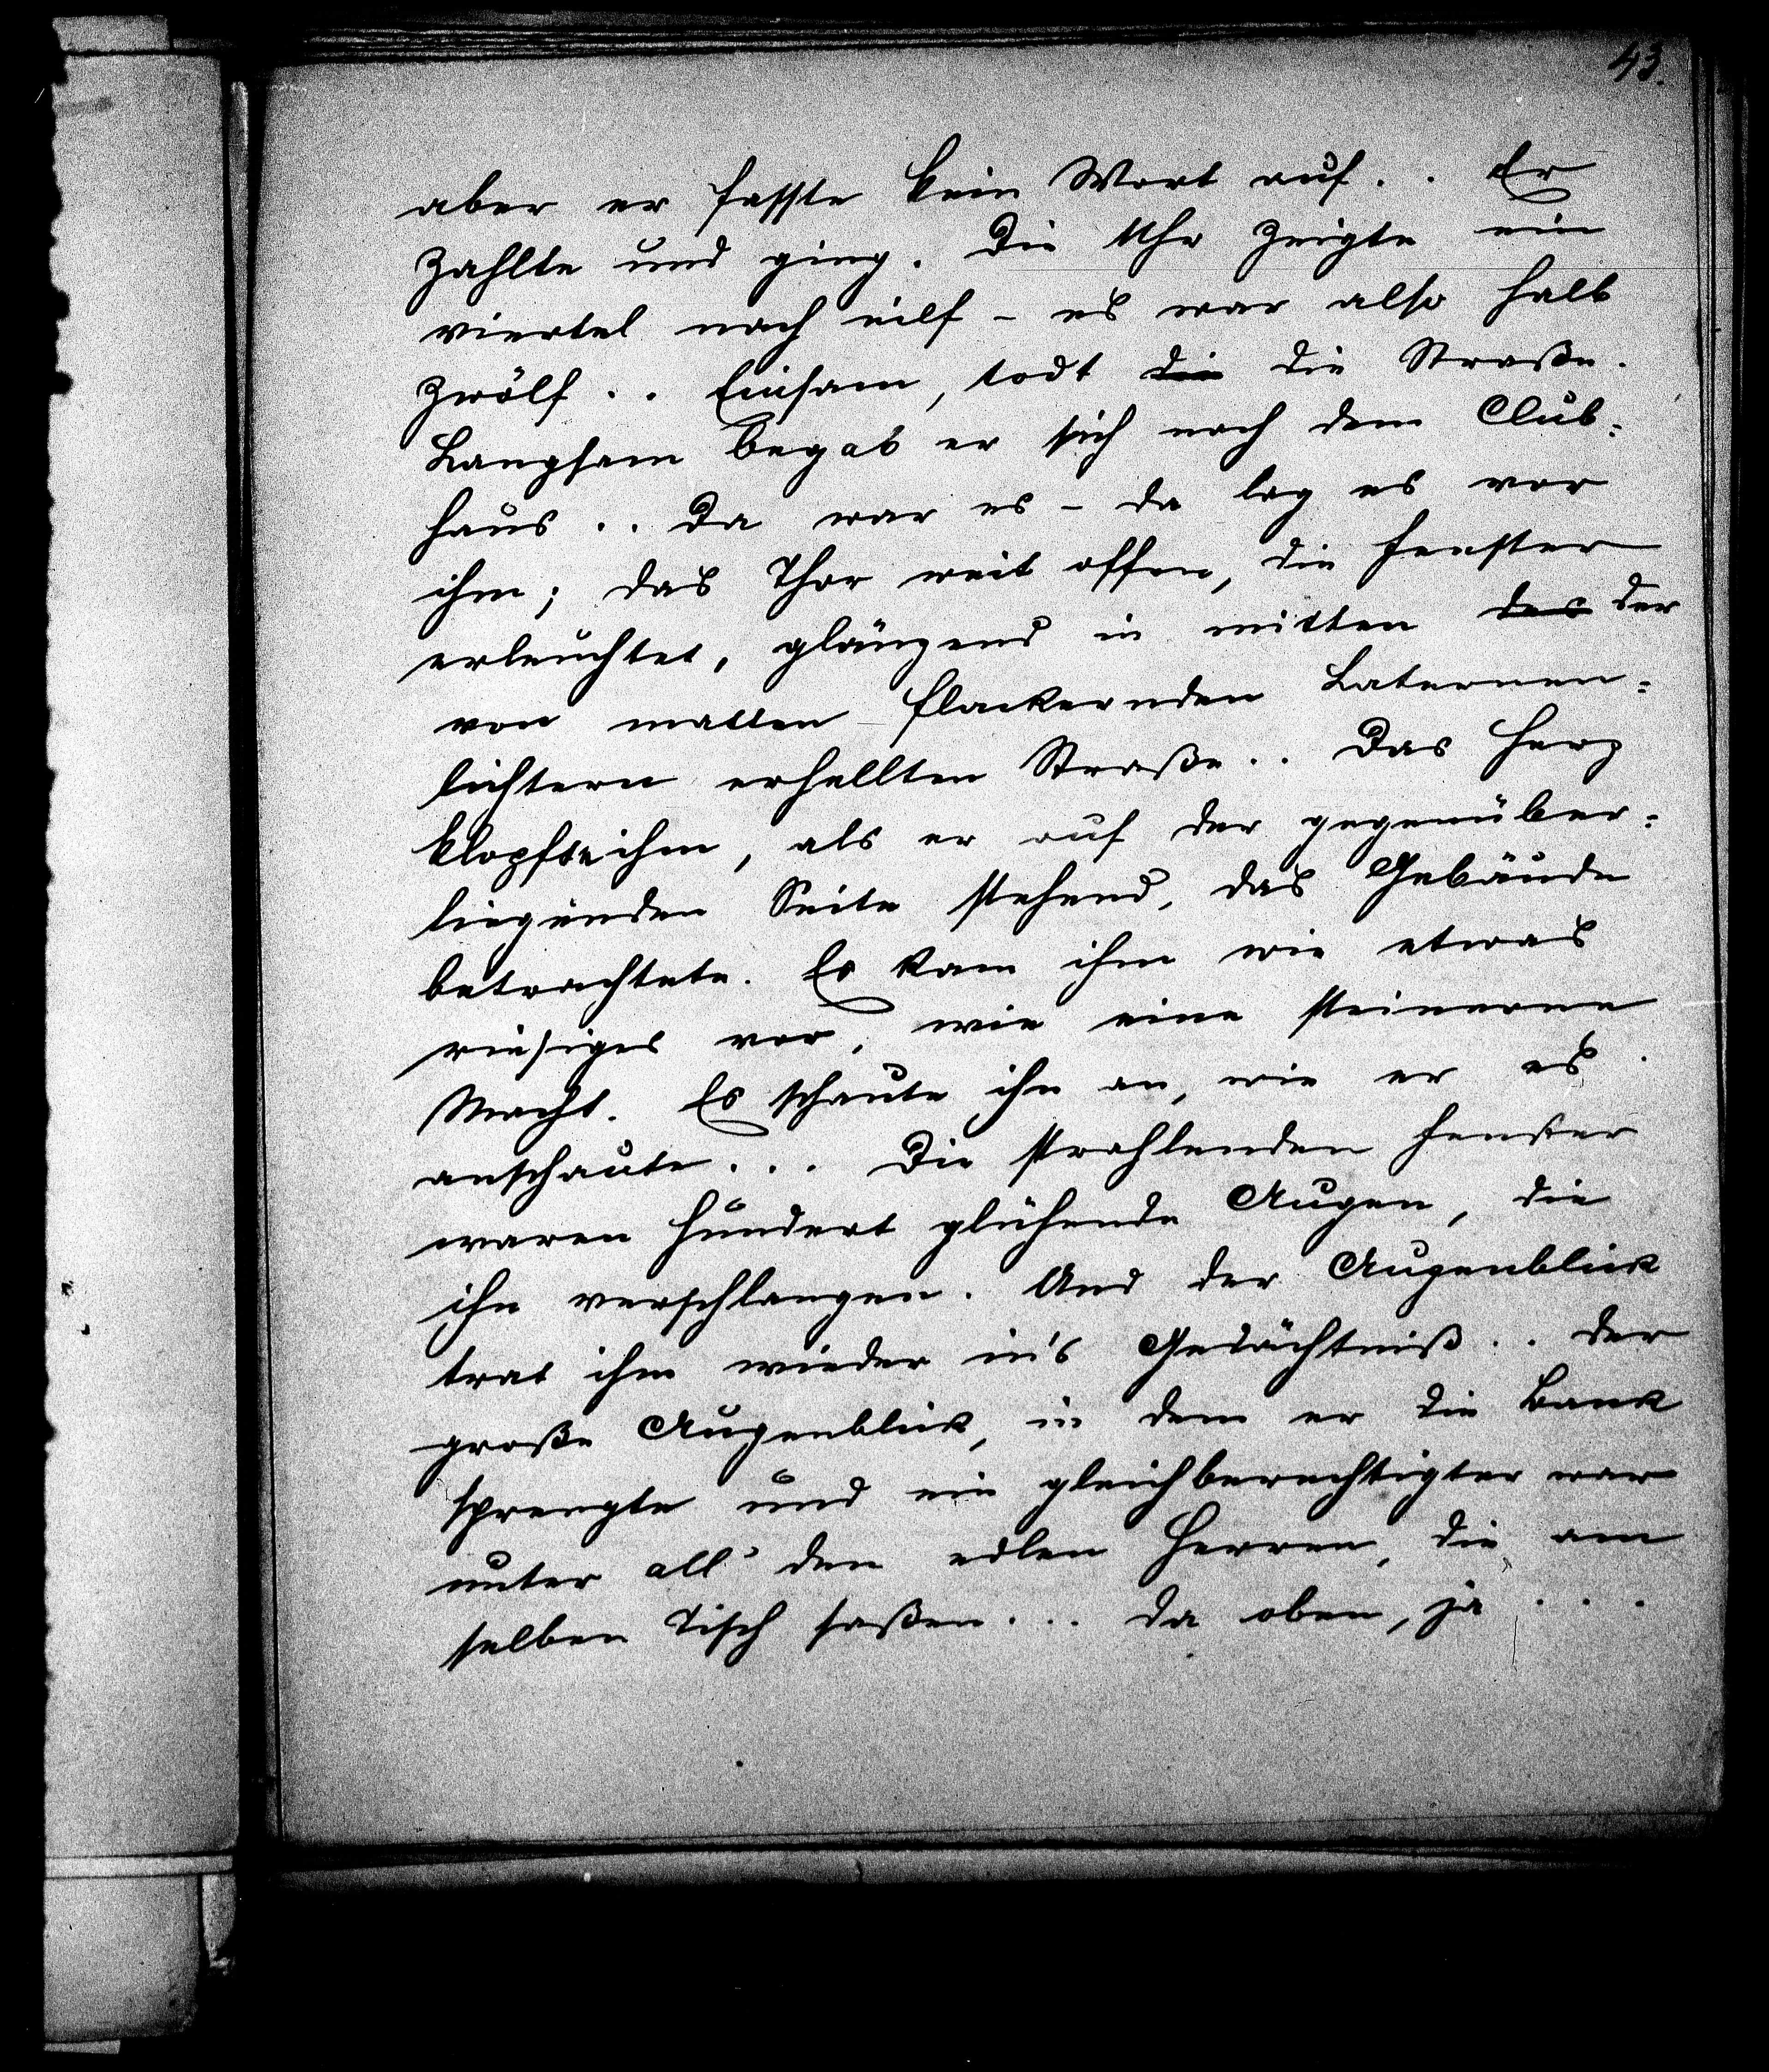 43.
aber er fasste kein Wort auf. . Er
zahlte und ging. Die Uhr zeigte ein
viertel nach eilf – es war also halb
zwölf . . Einsam, todt die die Straße.
Langsam begab er sich nach dem Club=
haus . . Da war es – da lag es vor
ihm; das Thor weit offen, die Fenster
erleuchtet, glänzend in mitten des der
von matten flackernden Laternen=
lichtern erhellten Straße . . Das Herz
klopfte ihm, als er auf der gegenüber=
liegenden Seite stehend, das Gebäude
betrachtete. Es kam ihm wie etwas
riesiges vor, wie eine steinerne
Macht. Es schaute ihn an, wie er es
anschaute . . . Die strahlenden Fenster
waren hundert glühende Augen, die
ihn verschlangen. Und der Augenblick
trat ihm wieder in's Gedächtniß . . der
große Augenblick, in dem er die Bank
sprengte und ein gleichberechtigter war
unter all' den edlen Herren, die am
selben Tisch saßen . . . da oben, ja . . .